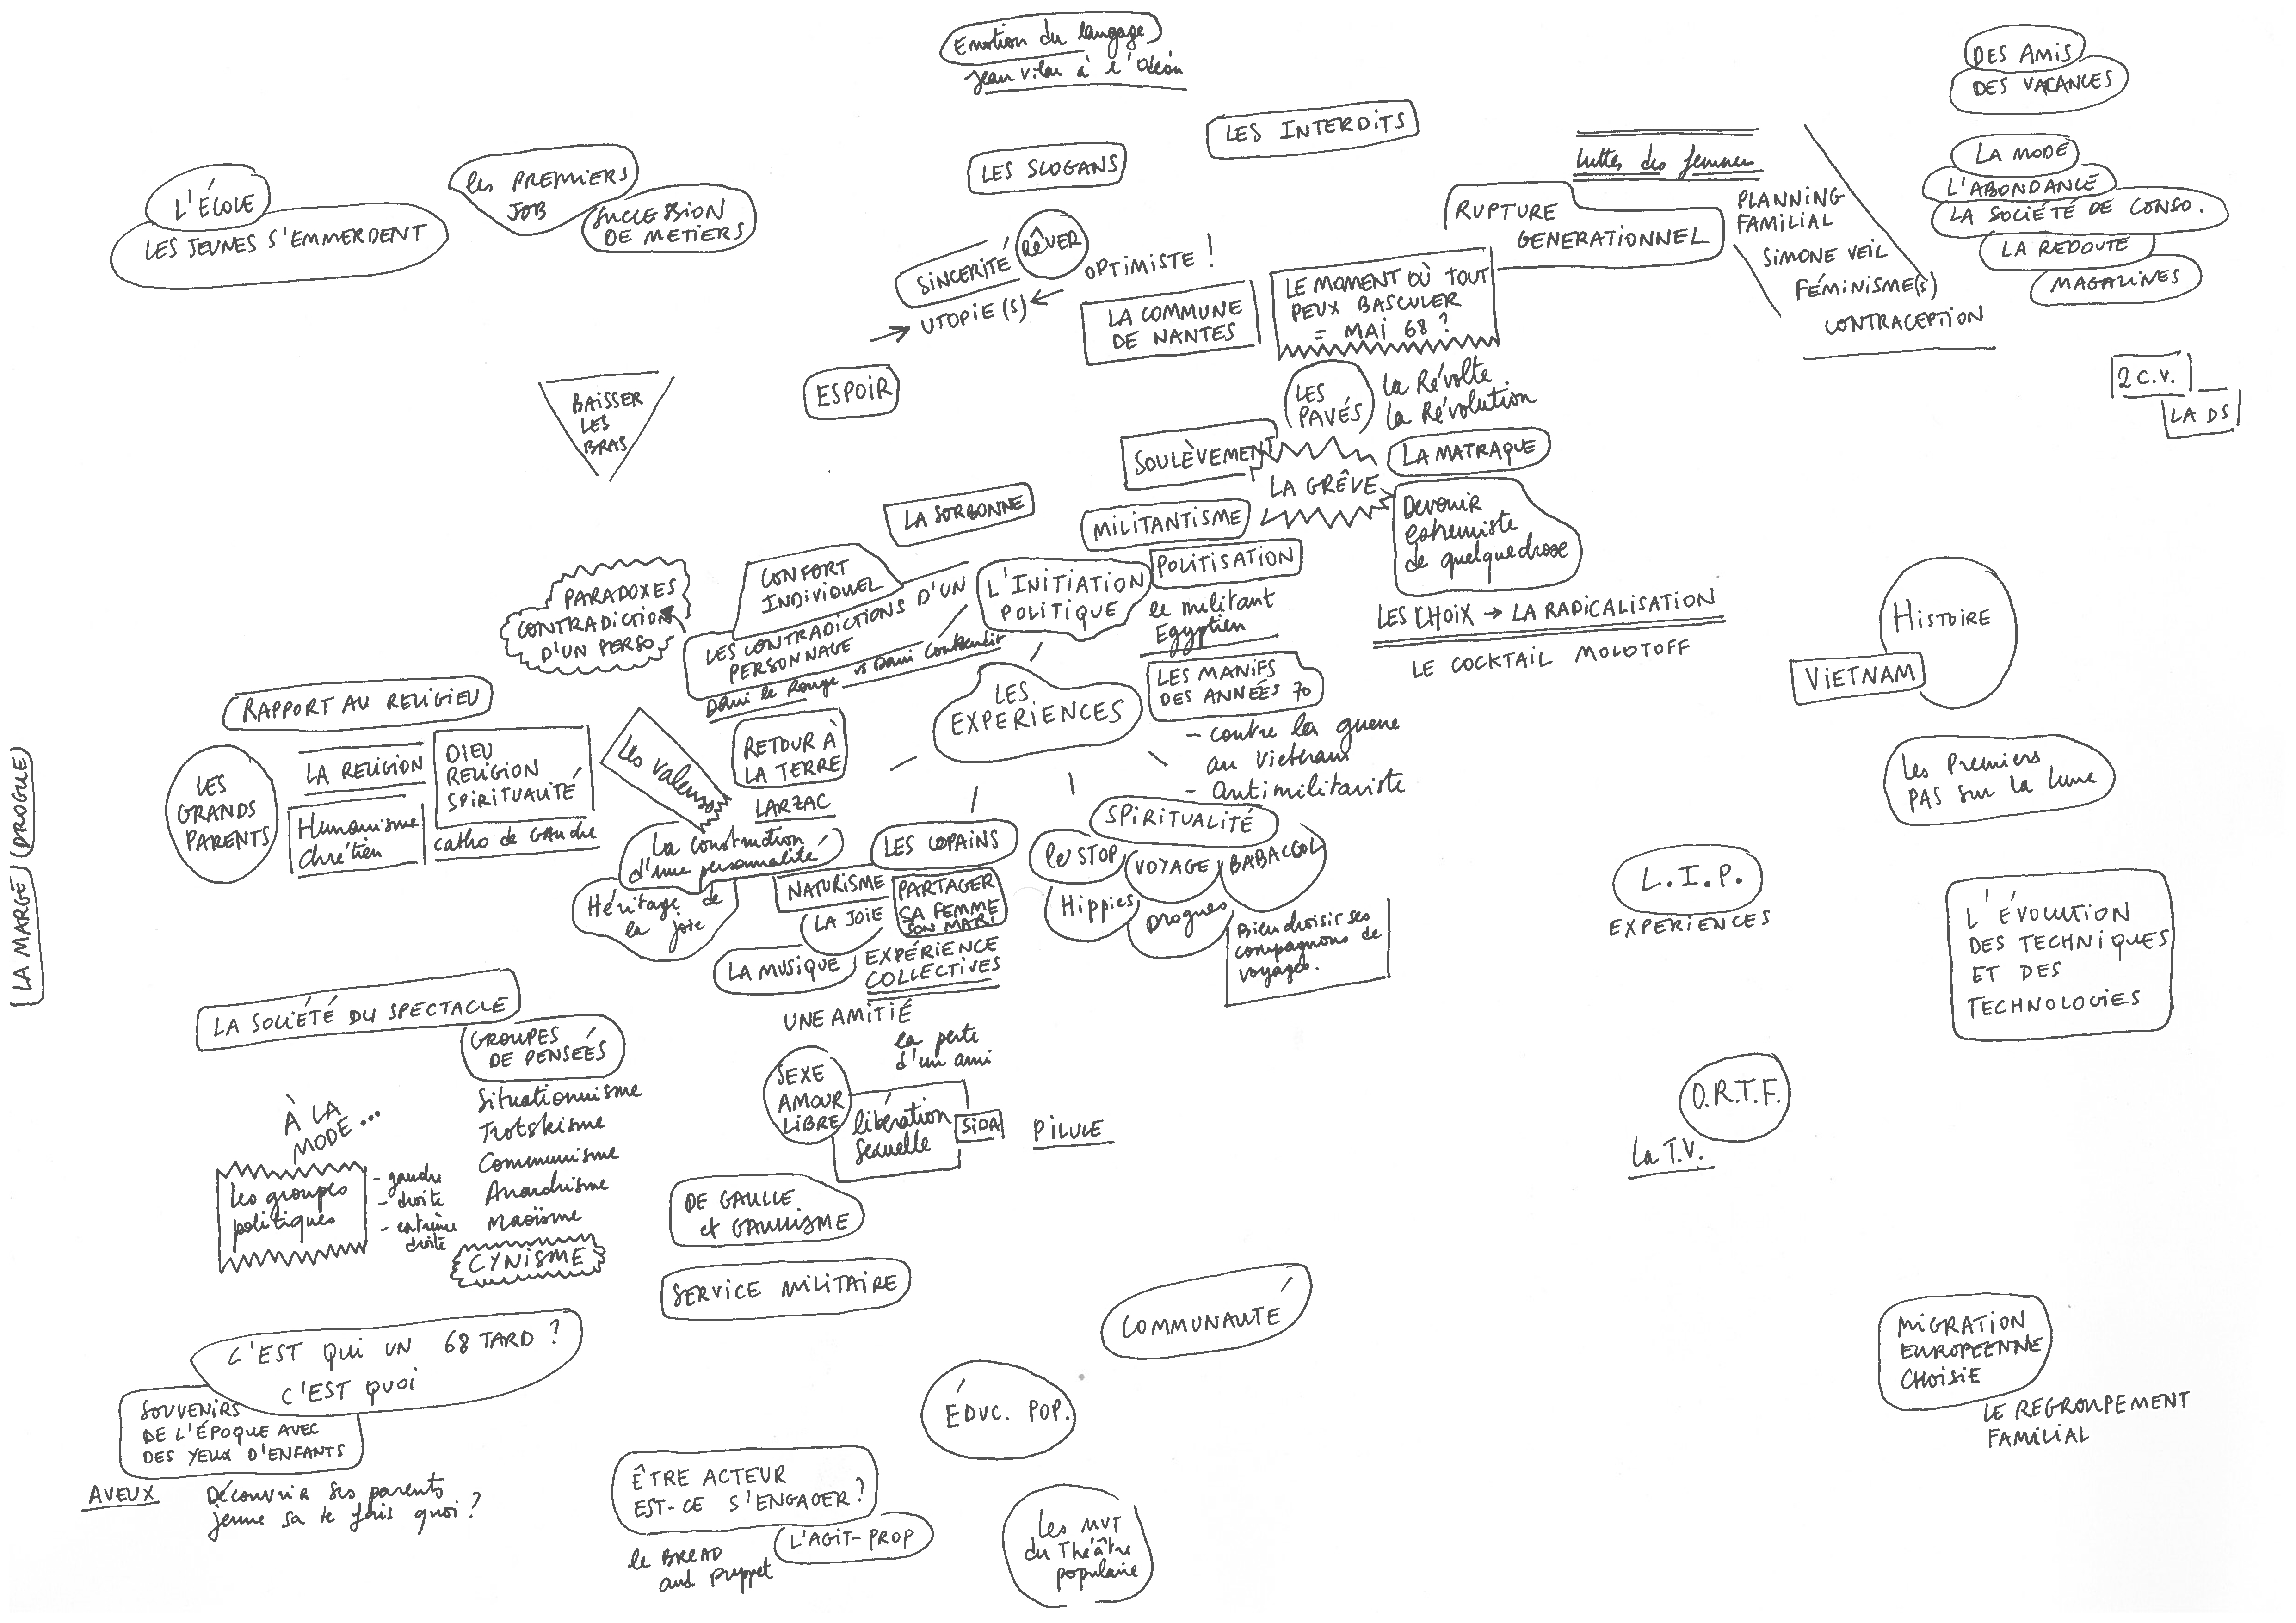 Emotion du langage
Jean Vilar à l'Odéon
DES AMIS
DES VACANCES
LES INTERDITS
LES SLOGANS
luttes des femmes
LA MODE
L'ABONDANCE
LA SOCIÉTÉ DE CONSO.
LA REDOUTE
MAGAZINES
L'ÉCOLE
LES JEUNES S'EMMERDENT
les PREMIERS
JOB
SUCCESSION
DE METIERS
RUPTURE
GENERATIONNEL
PLANNING
FAMILIAL
SIMONE VEIL
FÉMINISME(S)
CONTRACEPTION
SINCERITÉ
RÊVER
OPTIMISTE !
→ UTOPIE(S) ←
LA COMMUNE
DE NANTES
LE MOMENT OÙ TOUT
PEUX BASCULER
= MAI 68 ?
2 C.V.
LA DS
BAISSER
LES
BRAS
ESPOIR
LES
PAVÉS
la Révolte
la Révolution
SOULÈVEMENT
LA MATRAQUE
LA GRÊVE
LA SORBONNE
MILITANTISME
Devenir
extremiste
de quelque chose
PARADOXES
CONTRADICTION
D'UN PERSO
CONFORT
INDIVIDUEL
LES CONTRADICTIONS D'UN
PERSONNAGE
Dani le Rouge vs Dani Cohn Bendit
L'INITIATION
POLITIQUE
POLITISATION
le militant
Egyptien
LES CHOIX → LA RADICALISATION
LE COCKTAIL MOLOTOFF
HISTOIRE
VIETNAM
LES
EXPERIENCES
LES MANIFS
DES ANNÉES 70
- contre la guerre
au Vietnam
- Antimilitariste
RAPPORT AU RELIGIEU
LES
GRANDS
PARENTS
LA RELIGION
Humanisme
Chrétien
DIEU
RELIGION
SPIRITUALITÉ
catho de GAuche
Les valeurs
RETOUR À
LA TERRE
LARZAC
La construction
d'une personnalité
Héritage de
la joie
LES COPAINS
NATURISME
LA JOIE
PARTAGER
SA FEMME
SON MARI
LA MUSIQUE
EXPÉRIENCE
COLLECTIVES
UNE AMITIÉ
la perte
d'un ami
SPIRITUALITÉ
le STOP
VOYAGE
BABACOOL
Hippies
Drogues
Bien choisir ses
compagnons de
voyages.
Les Premiers
PAS sur la lune
L.I.P.
EXPERIENCES
L'ÉVOLUTION
DES TECHNIQUES
ET DES
TECHNOLOGIES
LA MARGE (DROGUE)
LA SOCIÉTÉ DU SPECTACLE
GROUPES
DE PENSÉES
Situationnisme
Trotskisme
Communisme
Anarchisme
Maoïsme
CYNISME
À LA
MODE...
Les groupes
politiques
- gauche
- droite
- extrême
droite
SEXE
AMOUR
LIBRE
libération
sexuelle
SIDA
PILULE
O.R.T.F.
La T.V.
DE GAULLE
et GAULLISME
SERVICE MILITAIRE
COMMUNAUTÉ
C'EST QUI UN 68 TARD ?
C'EST QUOI
SOUVENIRS
DE L'ÉPOQUE AVEC
DES YEUX D'ENFANTS
AVEUX
Découvrir ses parents
jeune sa te fais quoi ?
ÉDUC. POP.
MIGRATION
EUROPEENNE
CHOISIE
LE REGROUPEMENT
FAMILIAL
ÊTRE ACTEUR
EST-CE S'ENGAGER ?
L'AGIT-PROP
le BREAD
and puppet
Les MVT
du Théâtre
populaire